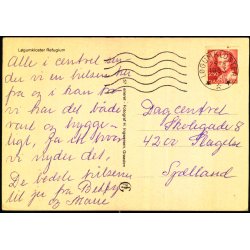 Løgumkloster Refugium
Alle i centret sen
der vi en hilsen her
fra og i kan tro
vi har det både
rart og hygge
ligt, ja en hver
vi nyder det,
De bedste hilsener
til jer fra Betty
og Marie
Dagcentret
Skolegade 8
4200 Slagelse
Sjælland